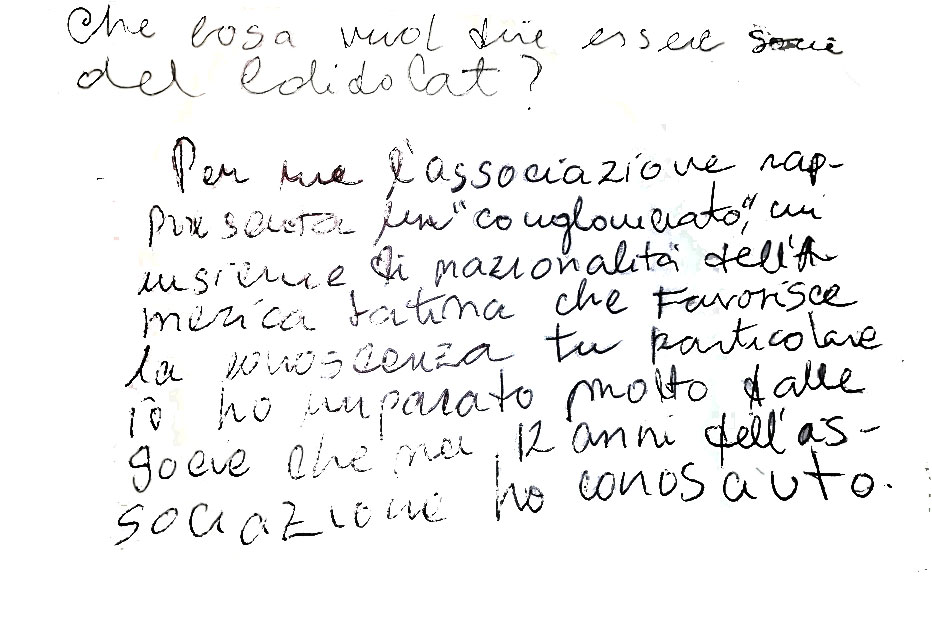 Che cosa vuol dire essere socie
del Cdidolat?
Per me l'associazione rap-
presenta un "conglomerato", un
insieme di nazionalità dell'A
merica Latina che favorisce
la conoscenza In particolare
io ho imparato molto dalle
socie che nei 12 anni dell'as-
sociazione ho conosciuto.